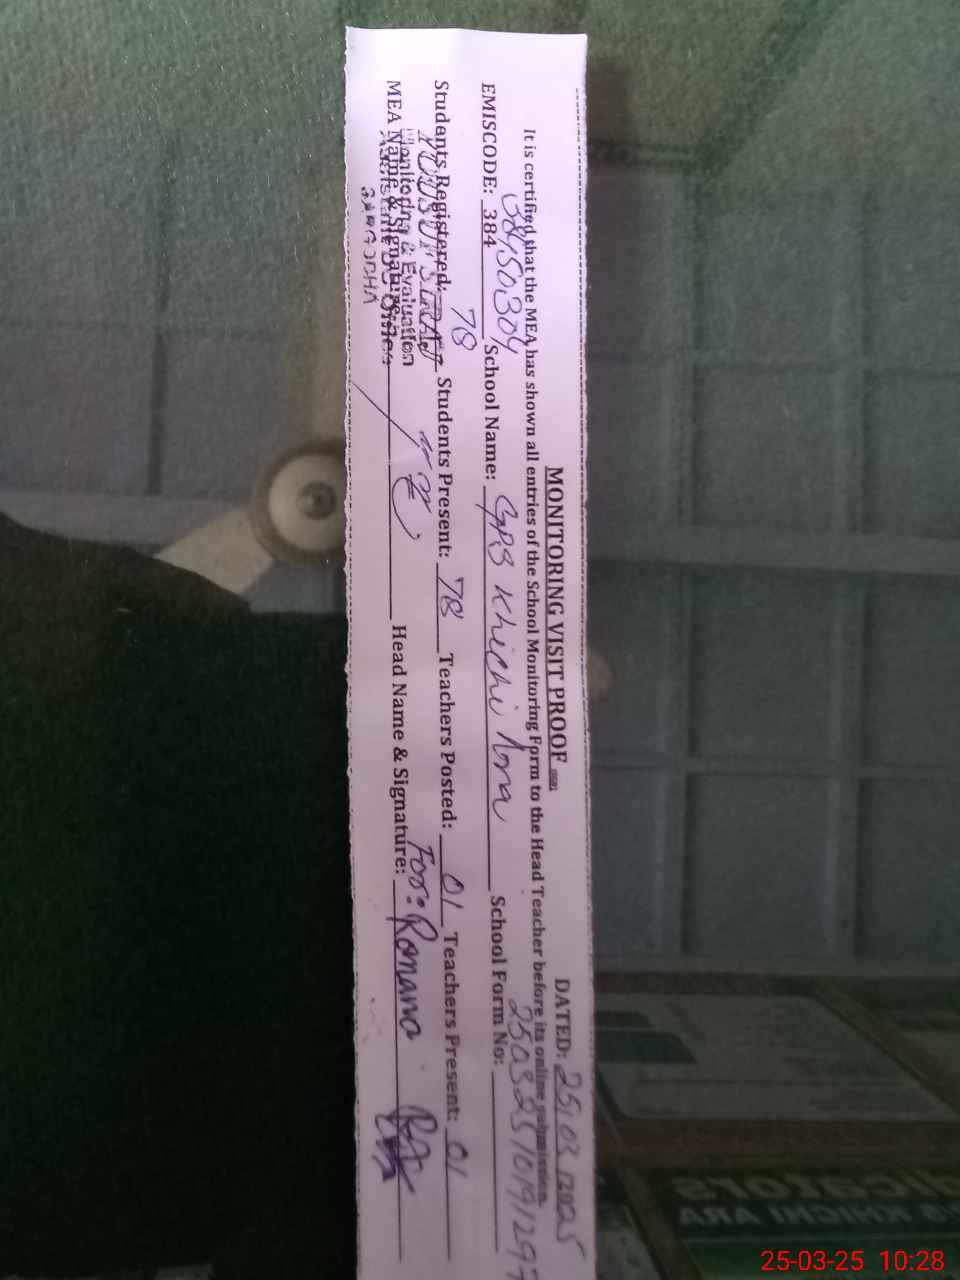 MONITORING VISIT PROOF
DATED: 25/03/2025
It is certified that the MEA has shown all entries of the School Monitoring Form to the Head Teacher before its online submission.
EMISCODE: 384 38450304 School Name: GPS Khichi Ara School Form No: 25032510191297
Students Registered: 78 Students Present: 78 Teachers Posted: 01 Teachers Present: 01
MEA Name & Signature: Head Name & Signature: For: Romana
Monitoring & Evaluation
SARGODHA
dicators
S KHICHI ARA
25-03-25 10:28